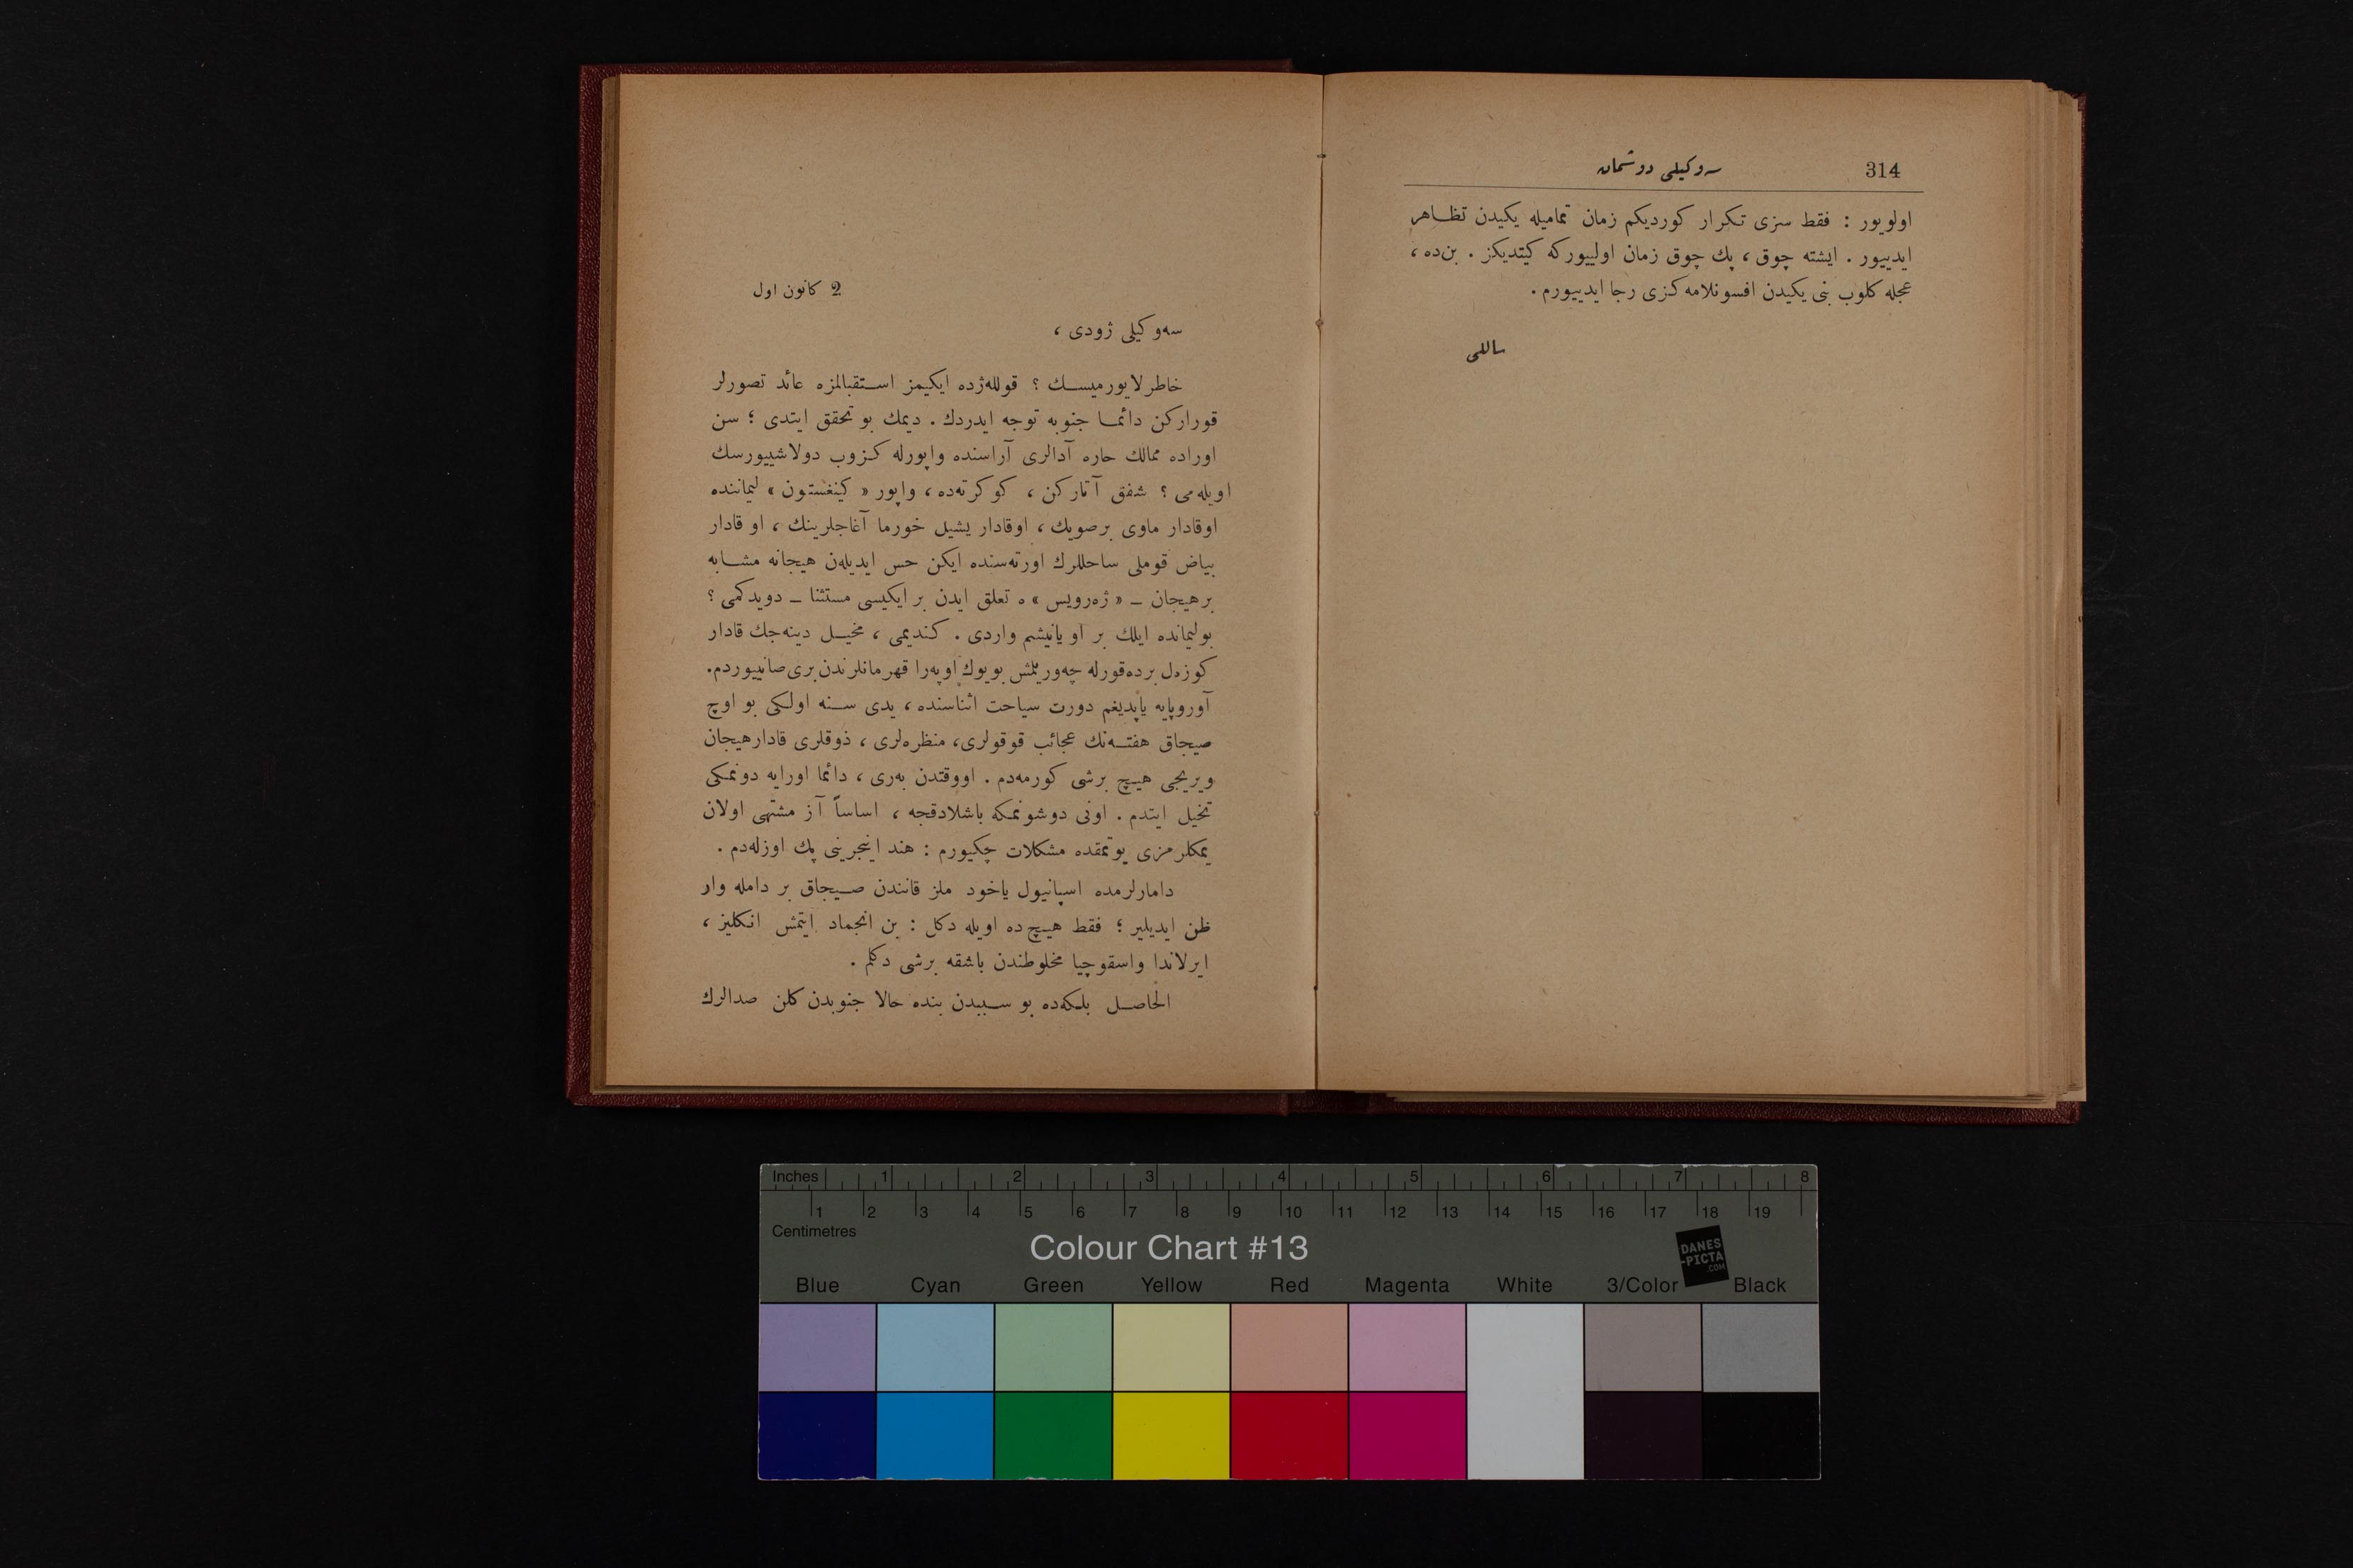 314
سه‌وكیلی دوشمان
اولویور : فقط سزی تكرار كوردیكم زمان تمامیله یكیدن تظاهر
ایدییور . ایشته چوق ، پك چوق زمان اولییوركه كیتدیكز . بن‌ده ،
عجله كلوب بنی یكیدن افسونلامه‌كزی رجا ایدییورم .
ساللی
2 كانون اول
سه‌وكیلی ژودی ،
خاطرلایورمیسك ؟ قولله‌ژده ایكیمز استقبالمزه عائد تصورلر
قوراركن دائما جنوبه توجه ایدردك . دیمك بو تحقق ایتدی ؛ سن
اوراده ممالك حاره آدالری آراسنده واپورله كزوب دولاشییورسك
اویله‌می ؟ شفق آتاركن ، كوكرته‌ده ، واپور « كینغستون » لیماننده
اوقادار ماوی برصویك ، اوقادار یشیل خورما آغاجلرینك ، او قادار
بیاض قوملی ساحللرك اورته‌سنده ایكن حس ایدیله‌ن هیجانه مشابه
برهیجان ــ « ژه‌رویس » ه تعلق ایدن بر ایكیسی مستثنا ــ دویدكمی ؟
بولیمانده ایلك بر اویانیشم واردی . كندیمی ، مخیل دینه‌جك قادار
كوزه‌ل برده‌قورله چه‌وریلمش بویوك اوپه‌را قهرمانلرندن بری صانییوردم.
آوروپایه یاپدیغم دورت سیاحت اثناسنده ، یدی سنه اولكی بو اوچ
صیجاق هفته‌نك عجائب قوقولری، منظره‌لری ، ذوقلری قادارهیجان
ویریجی هیچ برشی كورمه‌دم . اووقتدن به‌ری ، دائما اورایه دونمكی
تخیل ایتدم . اونی دوشونمكه باشلادقجه ، اساساً آز مشتهی اولان
یمكلرمزی یوتمقده مشكلات چكیورم : هند اینجرینی پك اوزله‌دم .
دامارلرمده اسپانیول یاخود ملز قانندن صیجاق بر دامله وار
ظن ایدیلیر ؛ فقط هیچ ده اویله دكل : بن انجماد ایتمش انكلیز ،
ایرلاندا واسقوچیا مخلوطندن باشقه برشی دكلم .
الحاصل بلكه‌ده بو سببدن بنده حالا جنوبدن كلن صدالرك
Inches 1 2 3 4 5 6 7 8
1 2 3 4 5 6 7 8 9 10 11 12 13 14 15 16 17 18 19
Centimetres
Colour Chart #13
DANES
-PICTA
.COM
Blue Cyan Green Yellow Red Magenta White 3/Color Black